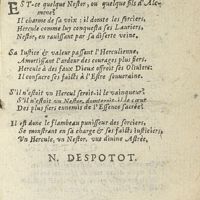 EST-ce quelque Nestor, ou quelque fils d'Alc-
mene?
Il charme de sa voix: il domte les sorciers,
Hercule comme luy conquesta ses Lauriers,
Nestor, en ravissant par sa diserte veine.
Sa Iustice & valeur passent l'Herculienne,
Amortissant l'ardeur des courages plus fiers,
Hercule à des faux Dieux offroit ses
Il consacre ses faicts à l'Estre souveraine.
S'il n'estoit un Hercul seroit-il le vainqueur?
S'il n'estoit un Nestor, domteroit-il le cœur
Des plus fiers ennemis de l'Essence sacrée?
Il est donc le flambeau punisseur des sorciers,
Se monstrant en sa charge & ses faicts iusticiers,
Un Hercule, un Nestor, une divine Astrée,
N. DESPOTOT.